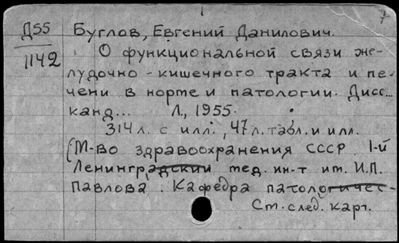 Д55 Буглов, Евгений Данилович.
1142 О функциональной связи же-
лудочно-кишечного тракта и пе-
чени в норме и патологии. Дисс...
канд... Л., 1955.
314 л. с илл., 47 л. табл. и илл.
(М-во здравоохранения СССР 1-й
Ленинградский мед. ин-т им. И.П.
Павлова. Кафедра патологичес-
Ст. след. карт.